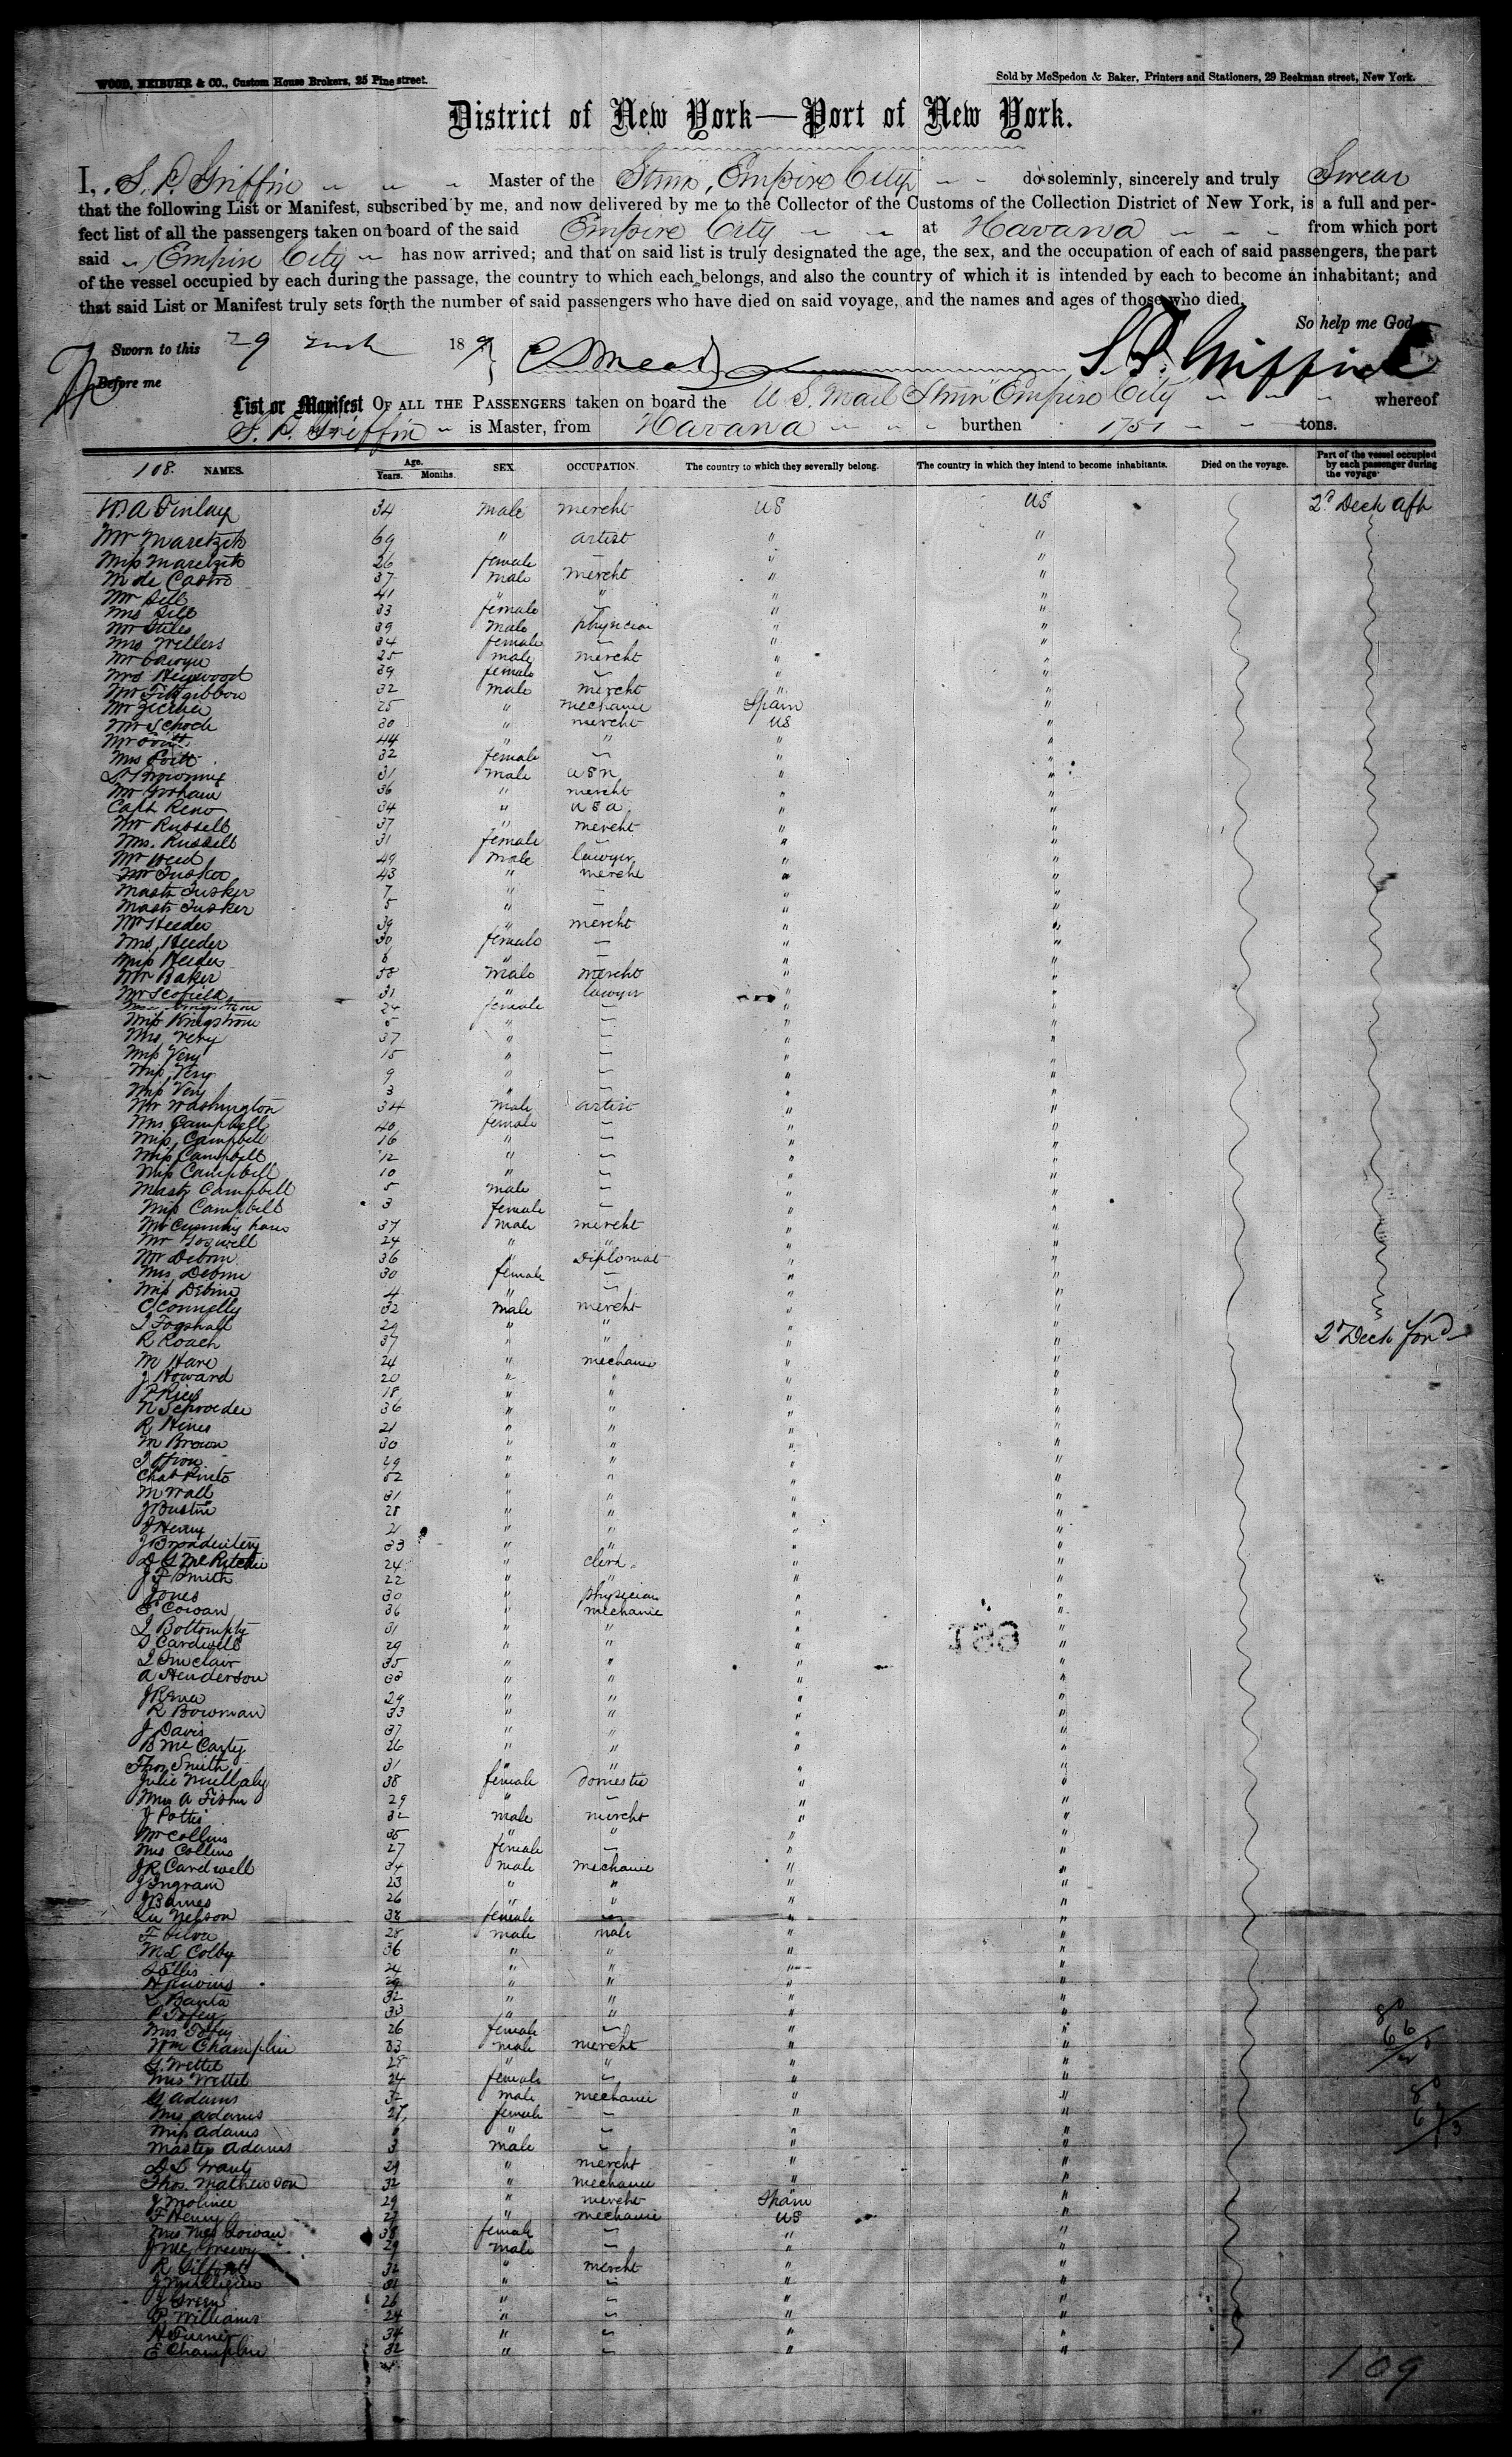 WOOD, NEIBUHR & CO., Custom House Brokers, 25 Pine street.
Sold by McSpedon & Baker, Printers and Stationers, 29 Beekman street, New York.
District of New York—Port of New York.
I, S. P. Griffin " " " Master of the Stmr, Empire City " " do solemnly, sincerely and truly Swear
that the following List or Manifest, subscribed by me, and now delivered by me to the Collector of the Customs of the Collection District of New York, is a full and per-
fect list of all the passengers taken on board of the said Empire City " " at Havana " " " from which port
said " Empire City " has now arrived; and that on said list is truly designated the age, the sex, and the occupation of each of said passengers, the part
of the vessel occupied by each during the passage, the country to which each belongs, and also the country of which it is intended by each to become an inhabitant; and
that said List or Manifest truly sets forth the number of said passengers who have died on said voyage, and the names and ages of those who died.
So help me God
Sworn to this 29 185
S. P. Griffin
Before me
List or Manifest OF ALL THE PASSENGERS taken on board the U S. Mail Stmr Empire City " " " whereof
S. P. Griffin " is Master, from Havana " " " burthen 1751 " " tons.
108. NAMES. Age. Years. Months. SEX. OCCUPATION. The country to which they severally belong. The country in which they intend to become inhabitants. Died on the voyage. Part of the vessel occupied by each passenger during the voyage
W. A Finlay 34 male mercht US US 2d Deck aft
Mr Maretzek 69 " artist " "
Miss Maretzek 26 female — " "
M de Castro 37 male mercht " "
Mr Sell 41 " " " "
Mrs Sell 33 female — " "
Mr Stiles 39 male physician " "
Mrs Willers 34 female — " "
Mr 25 male mercht " "
Mrs Heywood 39 female — " "
Mr Fitzgibbon 32 male mercht " "
Mr 25 " mechanic Spain "
Mr Schock 30 " mercht US "
Mr 44 " " " "
Mrs 32 female — " "
Lt Browning 31 male USN " "
Mr Graham 36 " mercht " "
Capt Reno 34 " USA " "
Mr Russell 37 " mercht " "
Mrs. Russell 31 female — " "
Mr Weed 49 male lawyer " "
Mr Tusker 43 " mercht " "
Mastr Tusker 7 " — " "
Mastr Tusker 5 " — " "
Mr Heeder 39 " mercht " "
Mrs Heeder 30 female — " "
Miss Heeder 6 " — " "
Mr Baker 38 male mercht " "
Mr Scofield 31 " lawyer " "
Mrs Kingstrom 24 female — " "
Miss Kingstrom 5 " — " "
Mrs Very 37 " — " "
Miss Very 15 " — " "
Miss Very 9 " — " "
Miss Very 3 " — " "
Mr Washington 34 male artist " "
Mrs Campbell 40 female — " "
Miss Campbell 16 " — " "
Miss Campbell 12 " — " "
Miss Campbell 10 " — " "
Mastr Campbell 5 male — " "
Miss Campbell 3 female — " "
Mr Cunningham 37 male mercht " "
Mr Goswell 24 " " " "
Mr Debrin 36 " Diplomat " "
Mrs Debrin 30 female — " "
Miss Debrin 4 " — " "
C Connelly 32 male mercht " "
J Fogshall 29 " " " "
R Roach 37 " " " " 2d Deck ford
M Hare 24 " mechanic " "
J Howard 20 " " " "
P Rice 18 " " " "
N Schroeder 36 " " " "
R Hines 21 " " " "
M Brown 30 " " " "
29 " " " "
Chas Pinto 52 " " " "
M Wall 31 " " " "
J Bustin 28 " " " "
J Henry 21 " " " "
J 33 " " " "
D G McRitchie 24 " clerk " "
J F Smith 22 " " " "
Jones 30 " physician " "
E Cowan 36 " mechanic " "
J Bottomply 31 " " " "
S Cardwell 29 " " " "
J Sinclair 35 " " " "
A Henderson 33 " " " "
J 29 " " " "
R Bowman 33 " " " "
J Davis 37 " " " "
B McCarty 26 " " " "
Thos Smith 31 " " " "
Julie Mullaly 38 female Domestic " "
Mrs A Fisher 29 " — " "
J Potter 32 male mercht " "
Mr Collins 35 " " " "
Mrs Collins 27 female — " "
J R Cardwell 34 male mechanic " "
J Ingram 23 " " " "
J Barnes 26 " " " "
Nelson 38 female — " "
F Silva 28 male male " "
M L Colby 36 " " " "
J Ellis 24 " " " "
29 " " " "
L Banta 32 " " " "
P Tofey 33 " " " "
Mrs Tofey 26 female — " "
Wm Champlin 33 male mercht " "
G. Wettel 28 " " " "
Mrs Wettel 24 female — " "
G Adams 32 male mechanic " "
Mrs Adams 27 female — " "
Miss Adams 6 " — " "
Master Adams 3 male — " "
D L Grant 29 " mercht " "
Thos. Mathewson 32 " mechanic " "
J Molinee 29 " mercht Spain "
F Henry 27 " mechanic US "
Mrs McGowan 38 female — " "
J McGreevy 29 male — " "
R Gilfort 32 " mercht " "
J Mulligan 31 " — " "
J Green 26 " — " "
P. Williams 24 " — " "
H Turner 34 " — " "
E Champlin 32 " — " "
109